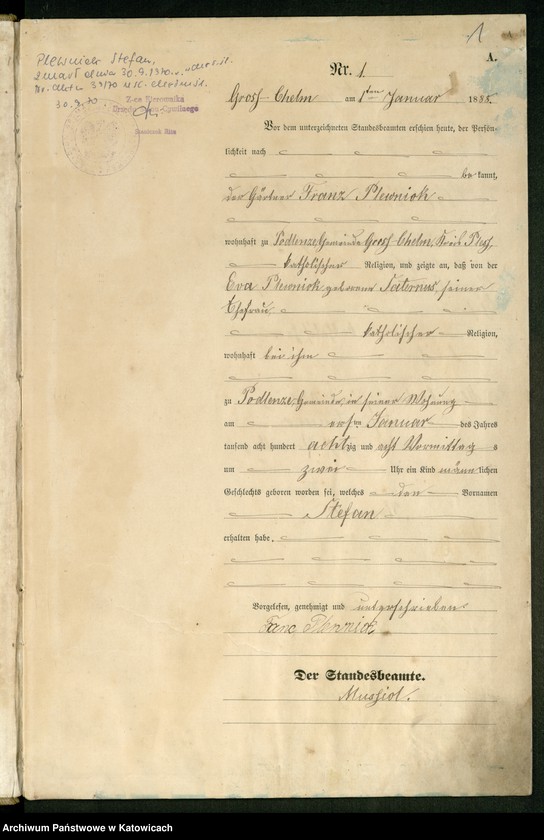 1
A.
Plewniok Stefan,
zmarł dnia 30.9.1970 r. w
Nr. aktu 39/70 USC
30.9.70
Z-ca Kierownika
Nr. 1.
Gross-Chelm am 1ten Januar 1888.
Vor dem unterzeichneten Standesbeamten erschien heute, der Persön-
lichkeit nach
bekannt,
der Gärtner Franz Plewniok
wohnhaft zu Podlenze, Gemeinde Gross-Chelm, Kreis Pless,
katholischer Religion, und zeigte an, daß von der
Eva Plewniok geborene Paternus, seiner
Ehefrau,
katholischer Religion,
wohnhaft bei ihm
zu Podlenze, Gemeinde, in seiner Wohnung
am ersten Januar des Jahres
tausend acht hundert achtzig und acht Vormittags
um zwei Uhr ein Kind männlichen
Geschlechts geboren worden sei, welches den Vornamen
Stefan
erhalten habe.
Vorgelesen, genehmigt und unterschrieben
Franc Plewniok
Der Standesbeamte.
Mussiol.
Archiwum Państwowe w Katowicach